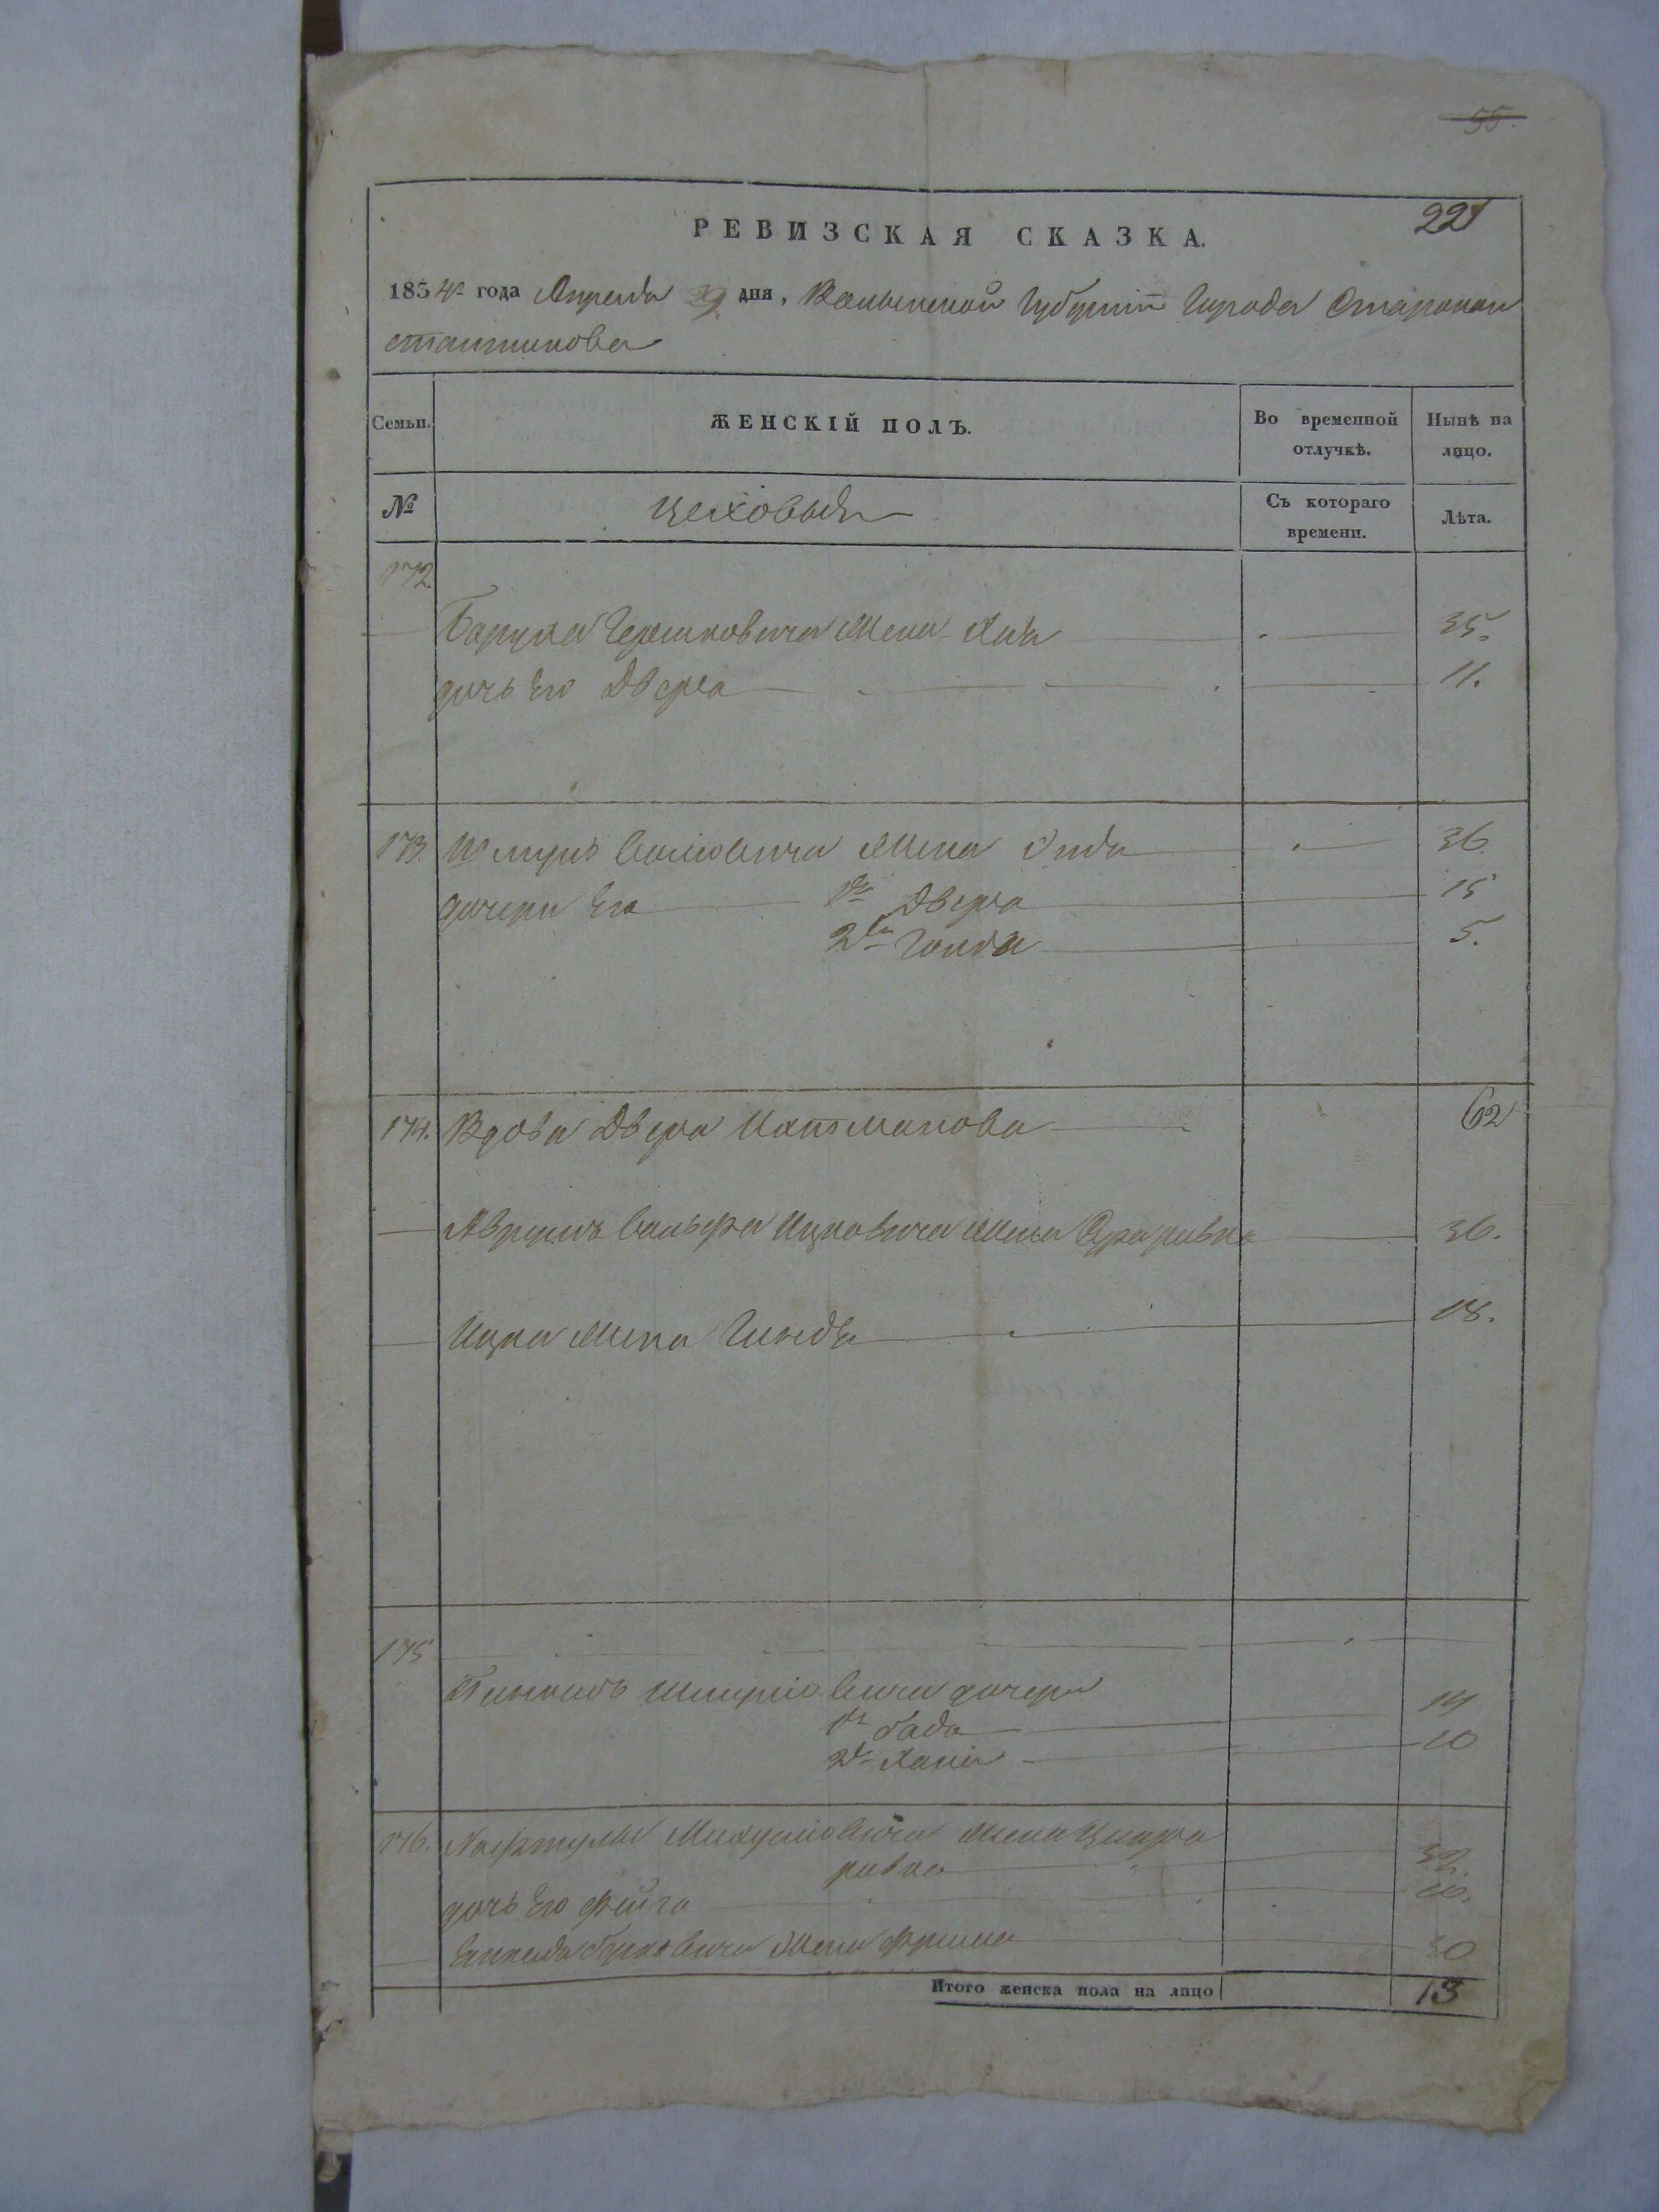 55.
221
РЕВИЗСКАЯ СКАЗКА.
1834го года Апреля 29 дня, Волынской Губерніи Города Старокон
стантинова
Семьи. ЖЕНСКІЙ ПОЛЪ. Во временной отлучкѣ. Нынѣ на лицо.
№ Цеховыя Съ котораго времени. Лѣта.
172.
Баруха Гершковича Жена Хая 35.
дочь Его Двера 11.
173. Жена 36
дочери Его 1я Двера 15
2я Голда 5.
174. Вдова Двера 62
Аврумъ Вольфа Ицковича Жена 36.
Ицка Жена Гинда 18.
175
дочери
1я 14
2я Хана 10
176. Нафтулы Жена
ривка 32.
дочь Его Фейга 10.
Жена Фрима 30
Итого женска пола на лицо 13